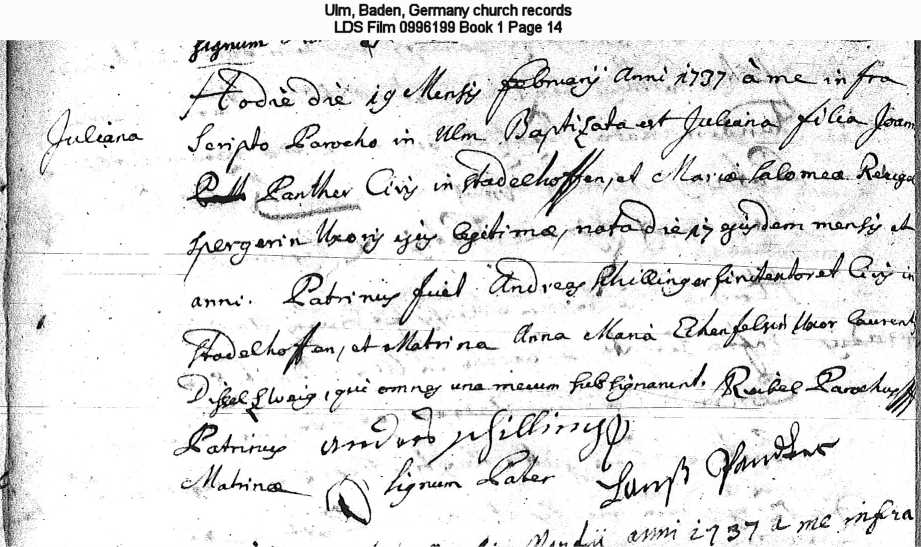 Ulm, Baden, Germany church records
LDS Film 0996199 Book 1 Page 14
signum
Hodie die 19 Mensis februarij Anni 1737 à me infra
Juliana
Scripto Parocho in Ulm Baptizata est Juliana filia Joan
Panther Civis in Stadelhoffen, et Mariæ Salomeæ
spergerin Uxoris ejus legitimæ, nata die 17 ejusdem mensis et
anni. Patrinus fuit Andreas Schillinger et Civis in
Stadelhoffen, et Matrina Anna Maria Uxor Laurent
qui omnes una mecum subsignarunt. Parochus
Patrinus anders schilling
Matrinæ signum Pater Hanß Pandter
anni 1737 a me infra